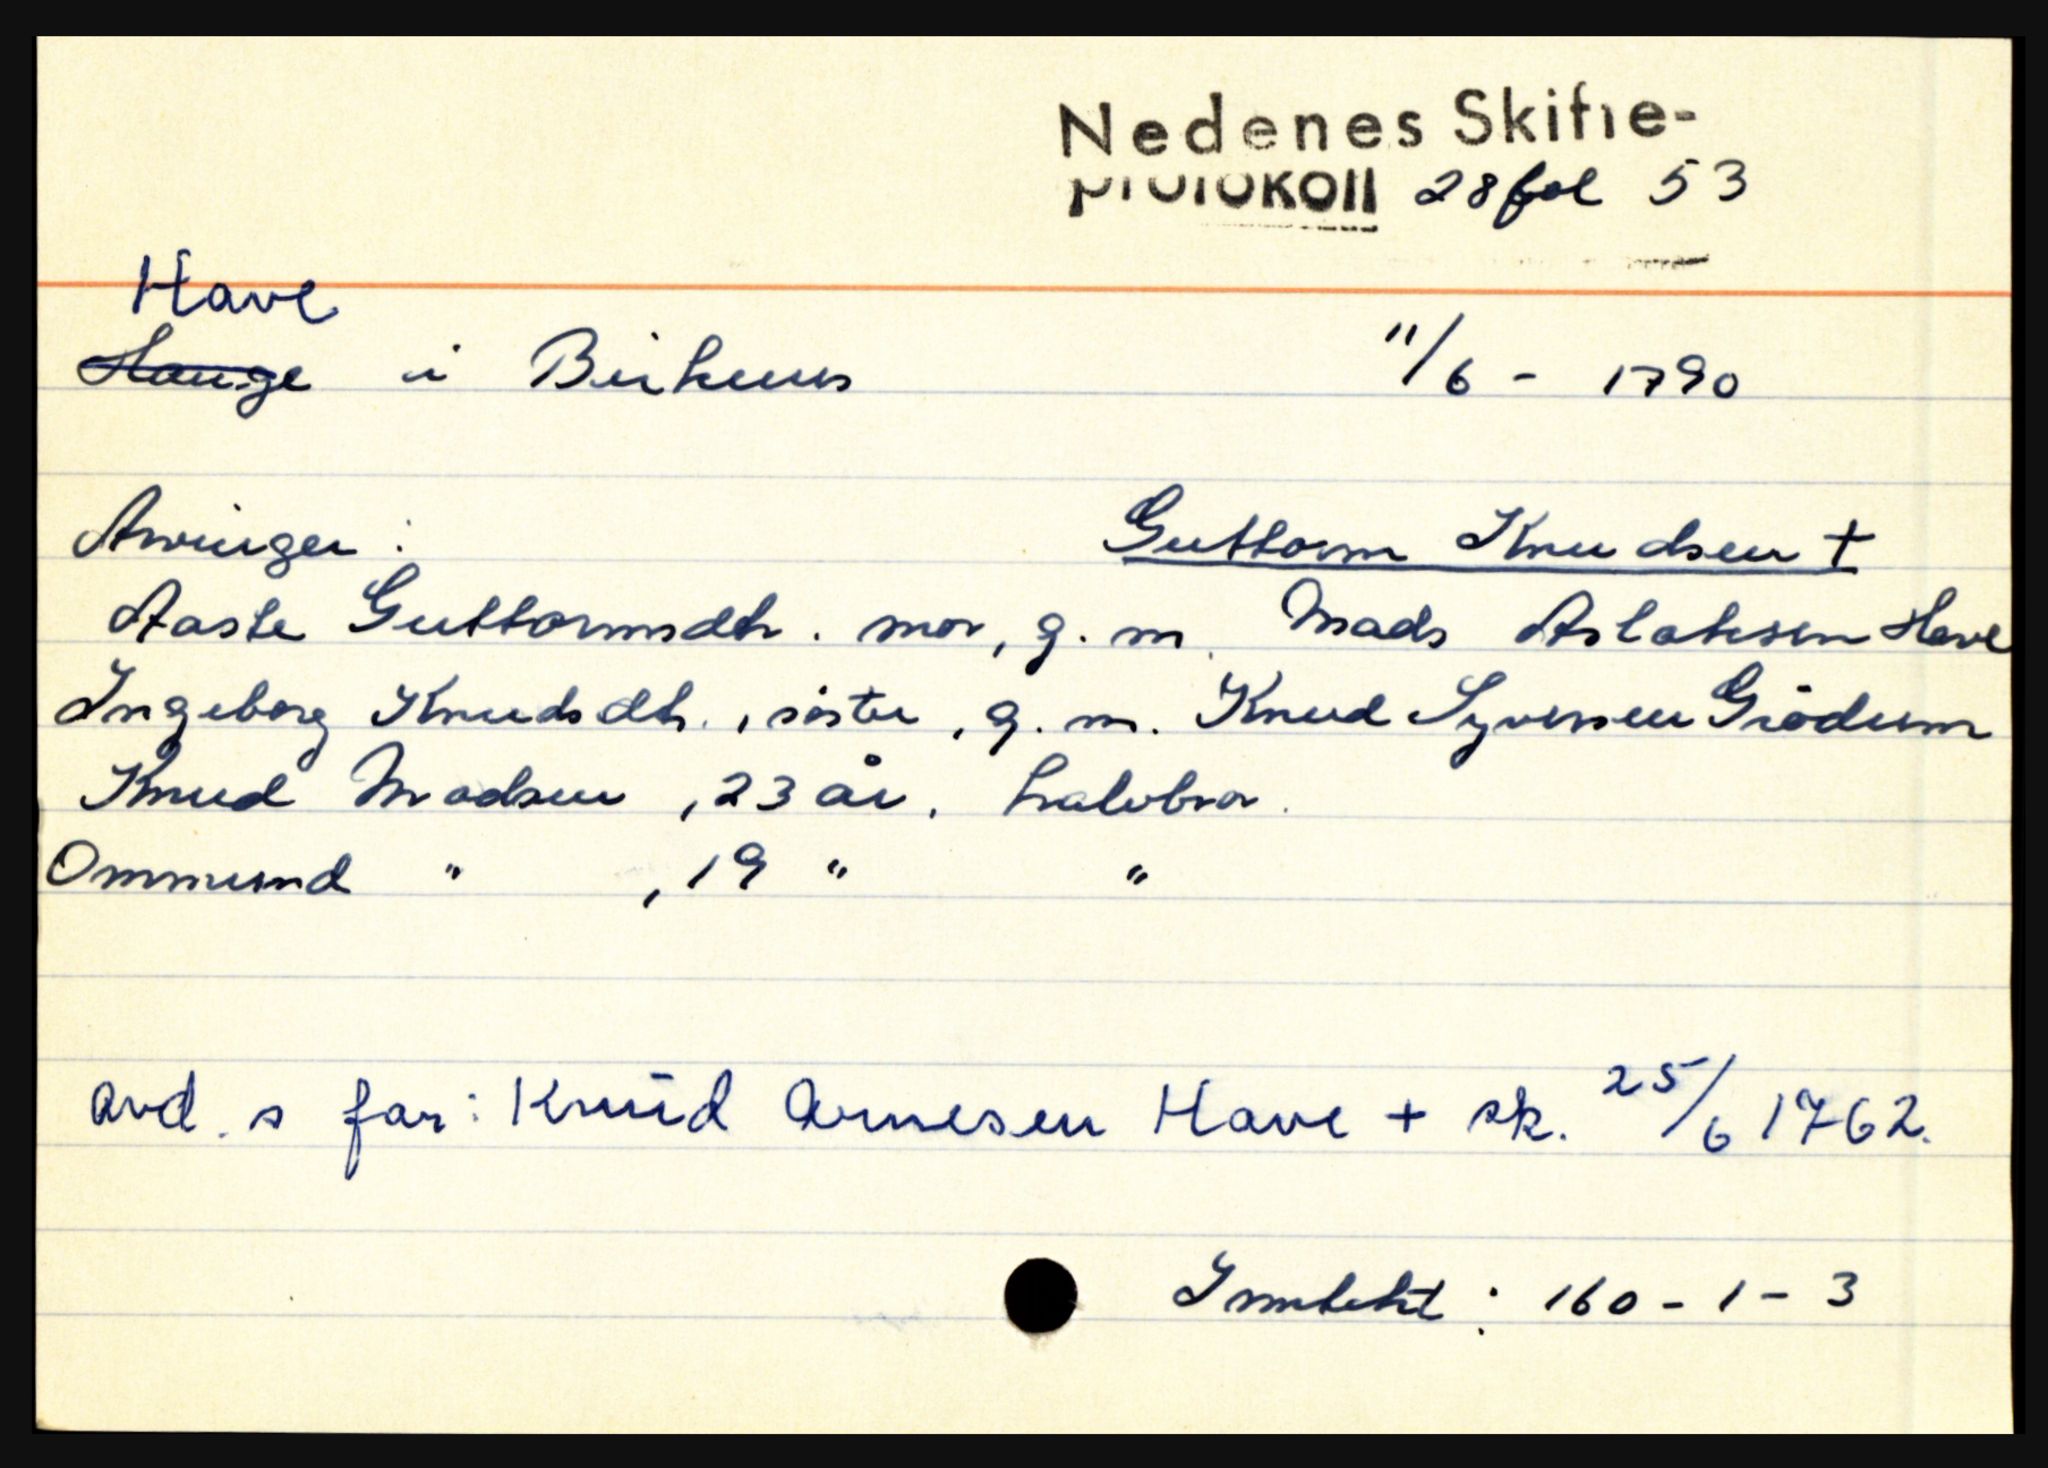 Nedenes Skifte-
protokoll 28 fol 53
Have
Hauge i Birkenes 11/6 - 1790
Arvinger :
Guttorm Knudsen +
Aaste Guttormsdtr. mor, g. m. Mads Aslaksen Have
Ingeborg Knudsdtr., søster, g. m. Knud Syversen Giödum
Knud Madsen , 23 år, halvbror.
Ommund " , 19 " "
Avd. s far: Knud Arnesen Have + sk. 25/6 1762.
Inntekt : 160 - 1 - 3